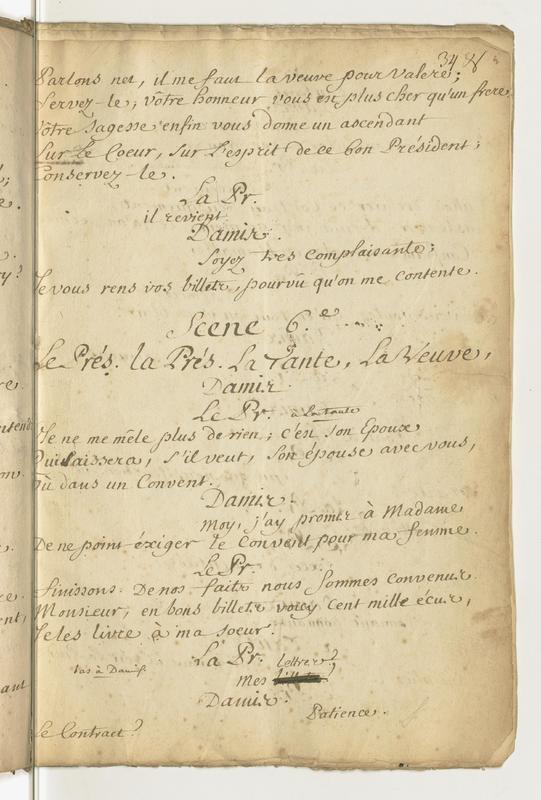 34
Parlons net, il me faut la veuve pour Valere;
Servez-le; vôtre honneur vous est plus cher qu'un frere
Vôtre Sagesse enfin vous donne un ascendant
Sur le Coeur, sur l'esprit de ce bon Président;
Conservez-le.
La Pr.
il revient.
Damis.
Soyez tres complaisante;
Je vous rens vos billets, pourvû qu'on me contente.
Scene 6.e
Le Prés. la Prés. La Tante, La Veuve,
Damis
Le Pr. à la tante
Je ne me mêle plus de rien; c'est son Epoux
Qui laissera, s'il veut, Son épouse avec vous,
Où dans un Convent.
Damis.
Moy, j'ay promis à Madame
De ne point éxiger le Convent pour ma femme.
Le Pr.
finissons. De nos faits nous sommes convenus.
Monsieur, en bons billets voicy Cent mille écus,
Je les livre à ma soeur.
La Pr.
bas à Damis
Mes lettres?
Damis.
Patience.
Le Contract?